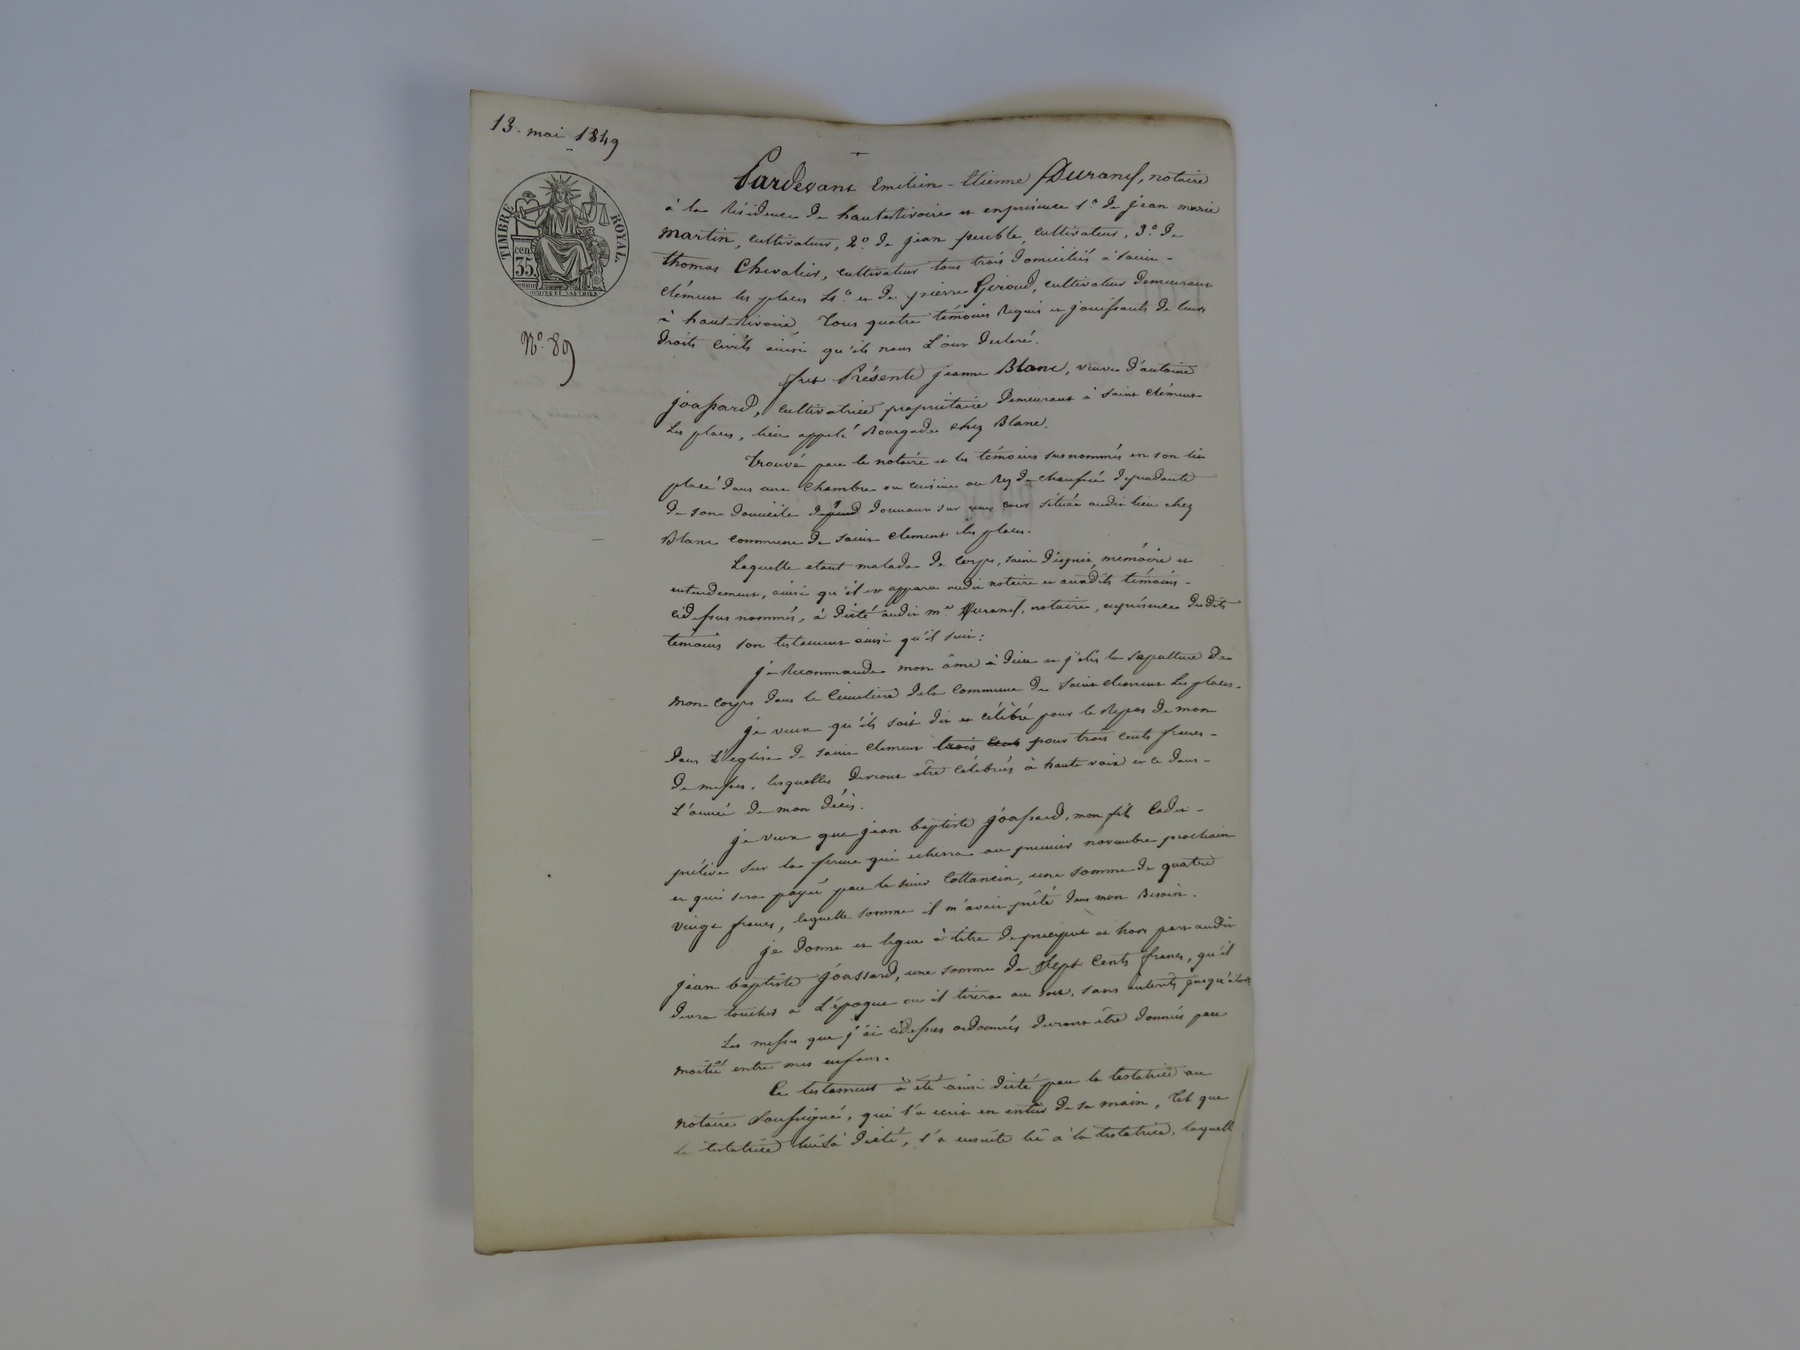 13. mai 1849
TIMBRE ROYAL.
cen.
35.
N.º 89
Pardevant Emilien-Etienne Durand, notaire
à la Résidence de hauterivoire et en présence 1.º de jean marie
martin, cultivateur, 2.º de jean peuble, cultivateur, 3.º de
thomas Chevalier, cultivateur tous trois domiciliés à saint-
clément les places 4.º et de pierre Giroud, cultivateur demeurant
à hauterivoire, Tous quatre témoins Requis et jouissants de leurs
droits civils ainsi qu'ils nous L'ont déclaré.
fut Présente jeanne Blanc, veuve d'antoine
joassard, cultivatrice propriétaire demeurant à Saint clément
Les places, lieu appelé Bourgade chez Blanc.
Trouvée par le notaire et les témoins susnommés en son lit
placé dans une Chambre ou cuisine au Rez de chaussée dépendante
de son domicile donnant sur une cour située audit lieu chez
Blanc commune de saint clement les places.
Laquelle étant malade de corps, saine d'esprit, mémoire et
entendement, ainsi qu'il est apparu audit notaire et auxdits témoins-
cidessus nommés, à dicté audit me Durand, notaire, en présence desdits
témoins son testament ainsi qu'il suit:
je Recommande mon âme à dieu et j'élis la sépulture de
mon corps dans le Cimetière dela Commune de Saint clement Les places-
je veux qu'ils soit dit et célébré pour le Repos de mon
dans L'église de saint clement trois cents pour trois cents francs-
de messes, lesquelles devront être célébrées à haute voix et ce dans-
L'année de mon décès.
je veux que jean baptiste joassard, mon fils Cadet-
prélève sur la ferme qui echerra au premier novembre prochain
et qui sera payée par le sieur Cottancin, une somme de quatre
vingt francs, laquelle somme il m'avait prêté dans mon Besoin.
je donne et lègue à titre de préciput et hors part audit
jean baptiste joassard, une somme de Sept Cents francs, qu'il
devra toucher à L'époque où il tirera au sort, sans intérêts jusqu'alors
Les messes que j'ai cidessus ordonnées devront être données par
moitié entre mes enfans.
Ce testament à été ainsi dicté par la testatrice au
notaire Soussigné, qui l'a ecrit en entier de sa main, tel que
la testatrice lui à dicté, l'a ensuite lu à la testatrice, laquelle